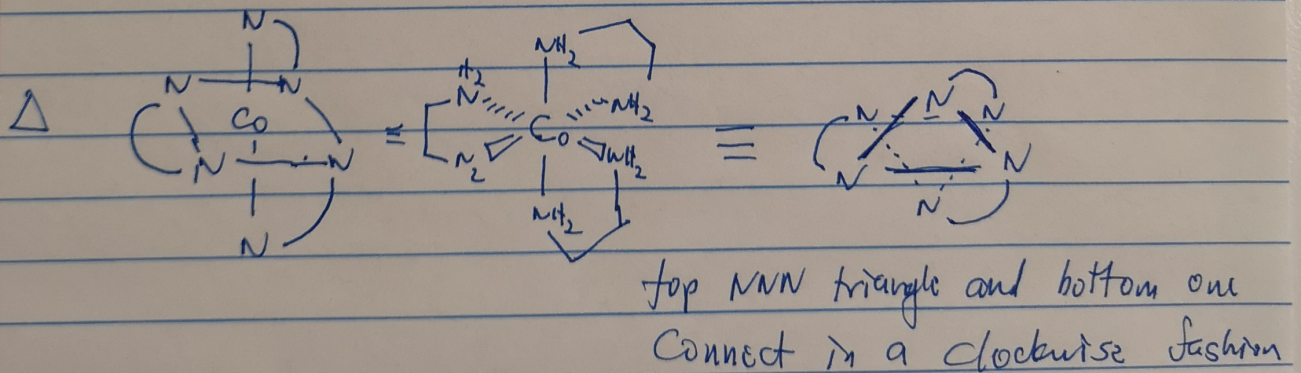 N
N N
Δ Co
N N
N
≡
NH2
H2
N NH2
Co
N2 NH2
NH2
≡
N N N
N N
N
top NNN triangle and bottom one
Connect in a clockwise fashion